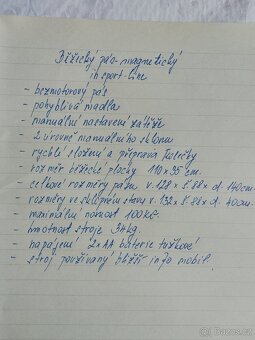 Běžecký pás - magnetický
in sport-line
- bezmotorový pás
- pohyblivá madla
- manuální nastavení zátěže
- 2 úrovně manuálního sklonu
- rychlé složení a přeprava kolečky
- rozměr běžecké plochy 110 x 35 cm.
- celkové rozměry pásu v. 128 x š. 88 x d. 140cm.
- rozměry ve sklopném stavu v. 132 x š. 88 x d. 40cm.
- maximální nosnost 100KG.
- hmotnost stroje 34kg.
- napájení 2xAA baterie tužkové
- stroj používaný bližší info mobil.